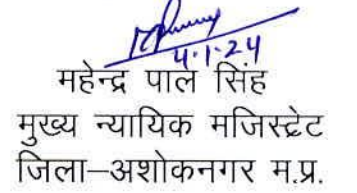 4.1.24
महेन्द्र पाल सिंह
मुख्य न्यायिक मजिस्ट्रेट
जिला–अशोकनगर म.प्र.